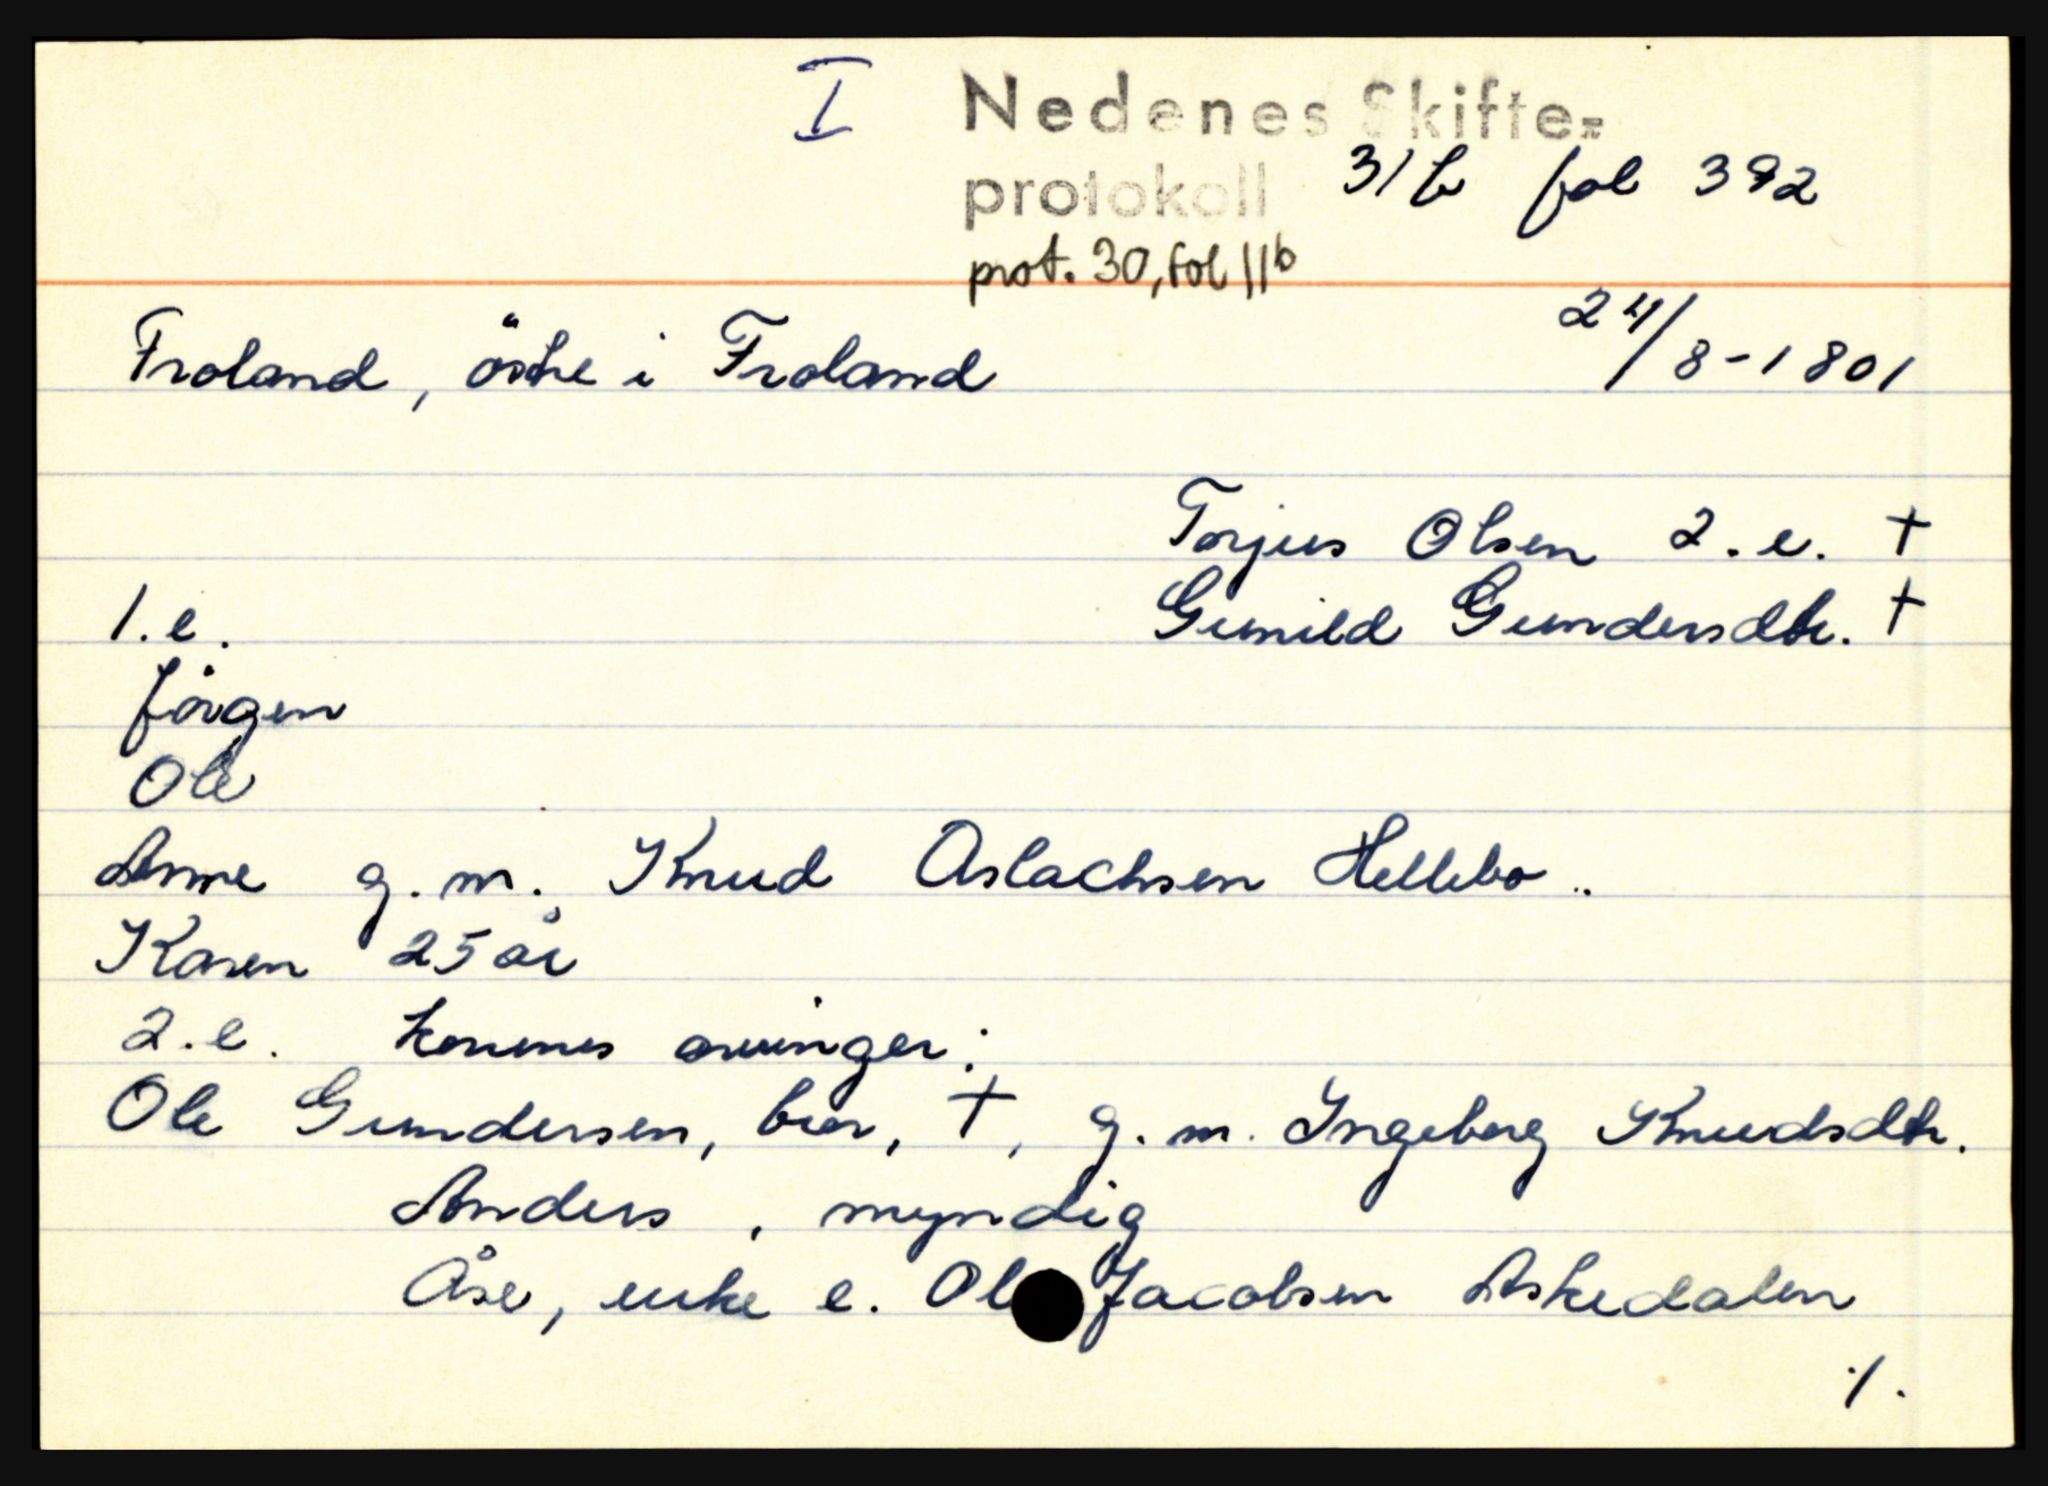 I Nedenes Skifte=
protokoll 31 b fol 392
prot. 30, fol 11b
Froland, östre i Froland 24/8-1801
Torjus Olsen 2.e. †
1.e. Gunild Gundersdtr. †
Jörgen
Ole
Anne g.m. Knud Aslachsen Hellebo..
Karen 25 år
2.e. konenes arvinger:
Ole Gundersen, bror, †, g.m. Ingeborg Knudsdtr.
Anders, myndig
Åse, enke e. Ole Jacobsen Askedalen
./.